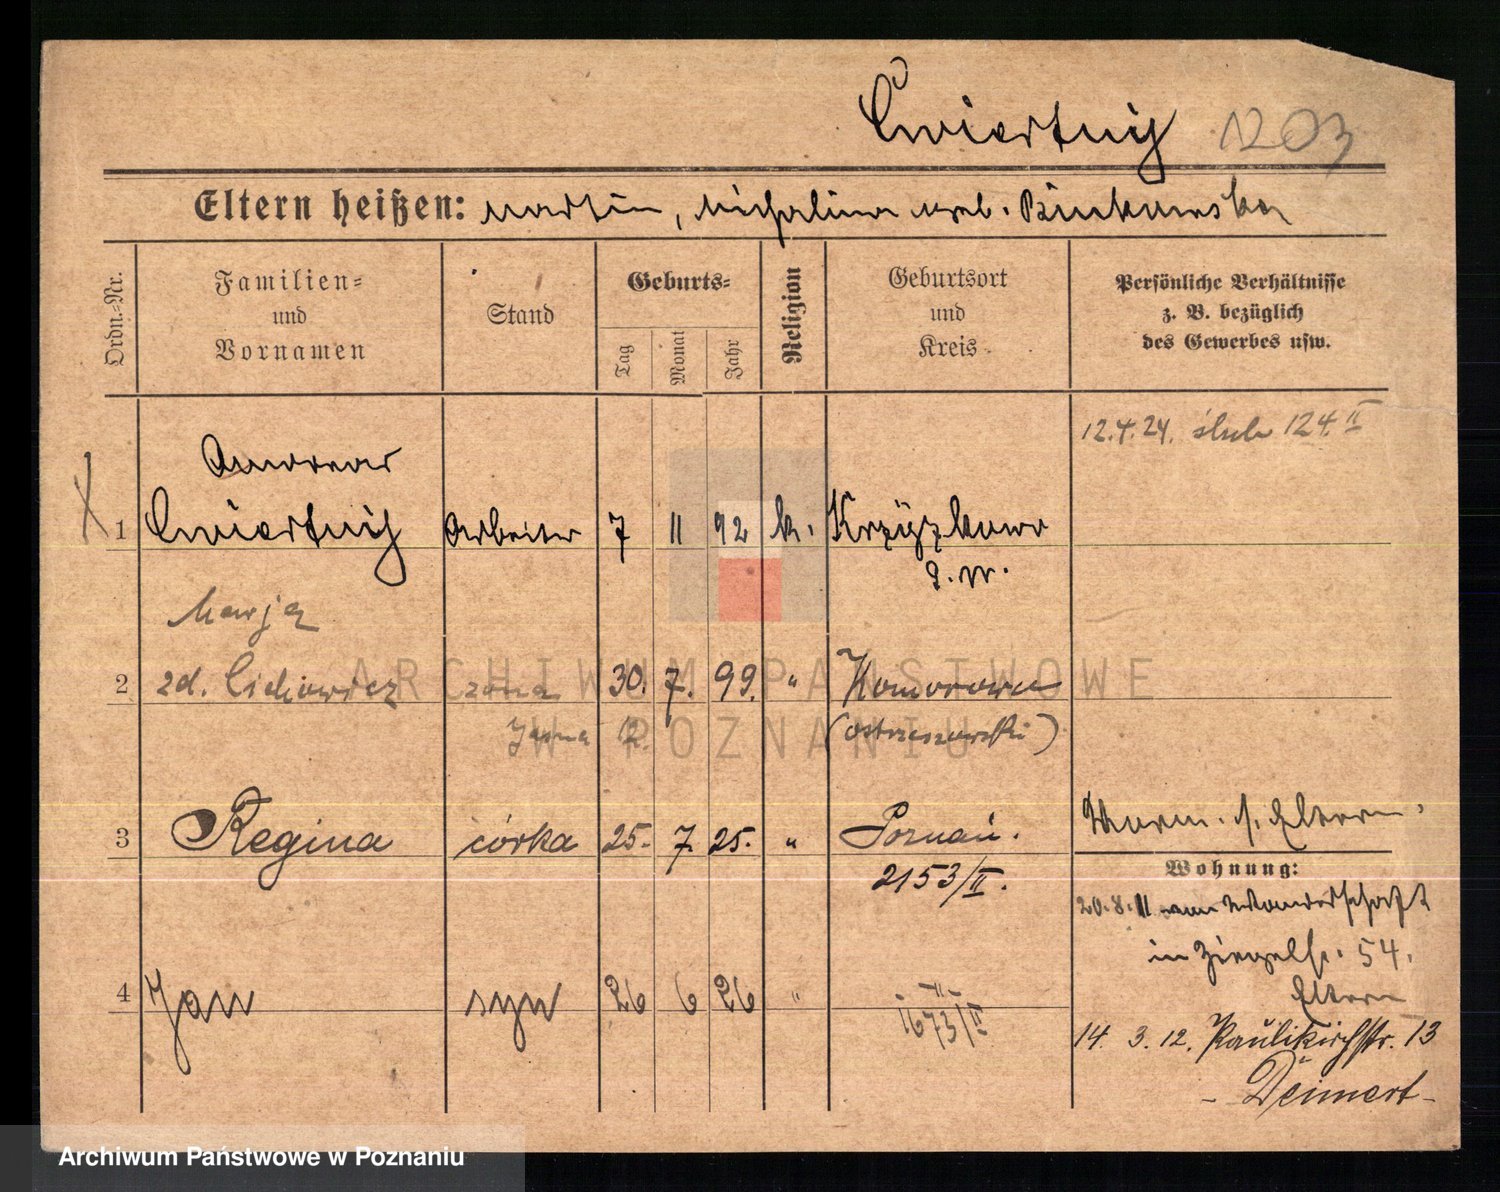 Cwiertnig 1203
Eltern heißen: Martin, Michalina geb. Binkowska
Ordn.-Nr.
Familien-
und
Vornamen
Stand
Geburts-
Tag
Monat
Jahr
Religion
Geburtsort
und
Kreis
Persönliche Verhältnisse
z. B. bezüglich
des Gewerbes usw.
12.4.24. ślub 124 II
Andreas
1 Cwiertnig Arbeiter 7 11 92 k. Krzyżkowo
Marja
2 zd. Cichowicz żona 30. 7. 99. " Komorowo
(Ostrzeszowski)
3 Regina córka 25. 7. 25. " Poznań.
2153/II.
s. Eltern.
Wohnung:
20.8.11 von Wanderschaft
in Ziegelstr. 54.
Eltern
4 Jan syn 26 6 26 " -"-
1673/II
14. 3. 12. Paulikirchstr. 13
- Deimert -
ARCHIWUM PAŃSTWOWE
W POZNANIU
Archiwum Państwowe w Poznaniu